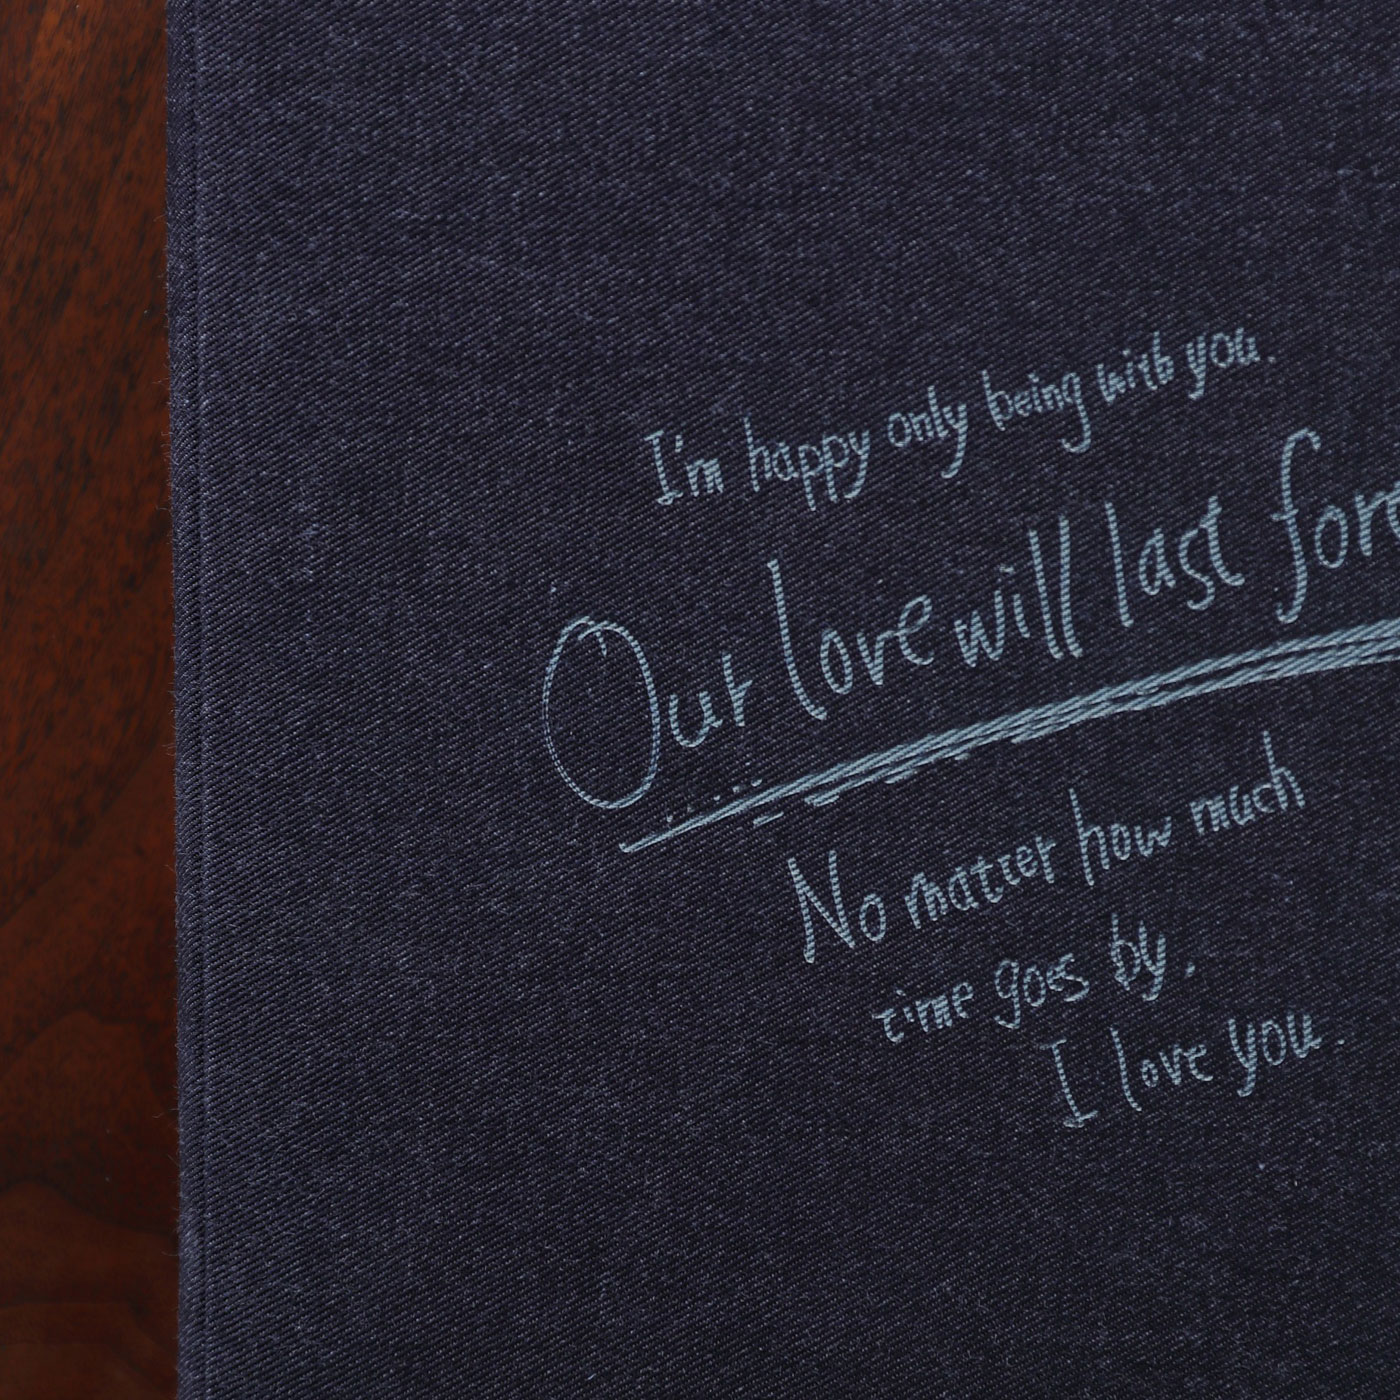 I'm happy only being with you.
Our love will last for
No matter how much
time goes by.
I love you.